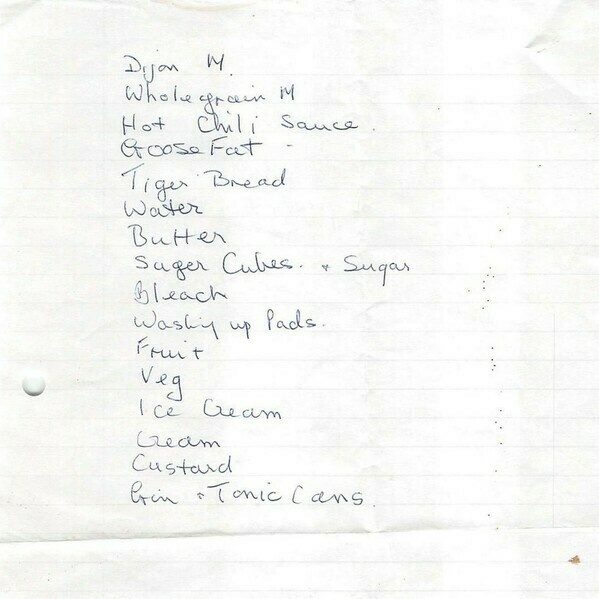 Dijon M.
Wholegrain M
Hot Chili Sauce.
Goose Fat -
Tiger Bread
Water
Butter
Suger Cubes. + Sugar
Bleach
Washing up Pads.
Fruit
Veg
Ice Cream
Cream
Custard
Gin + Tonic Cans.